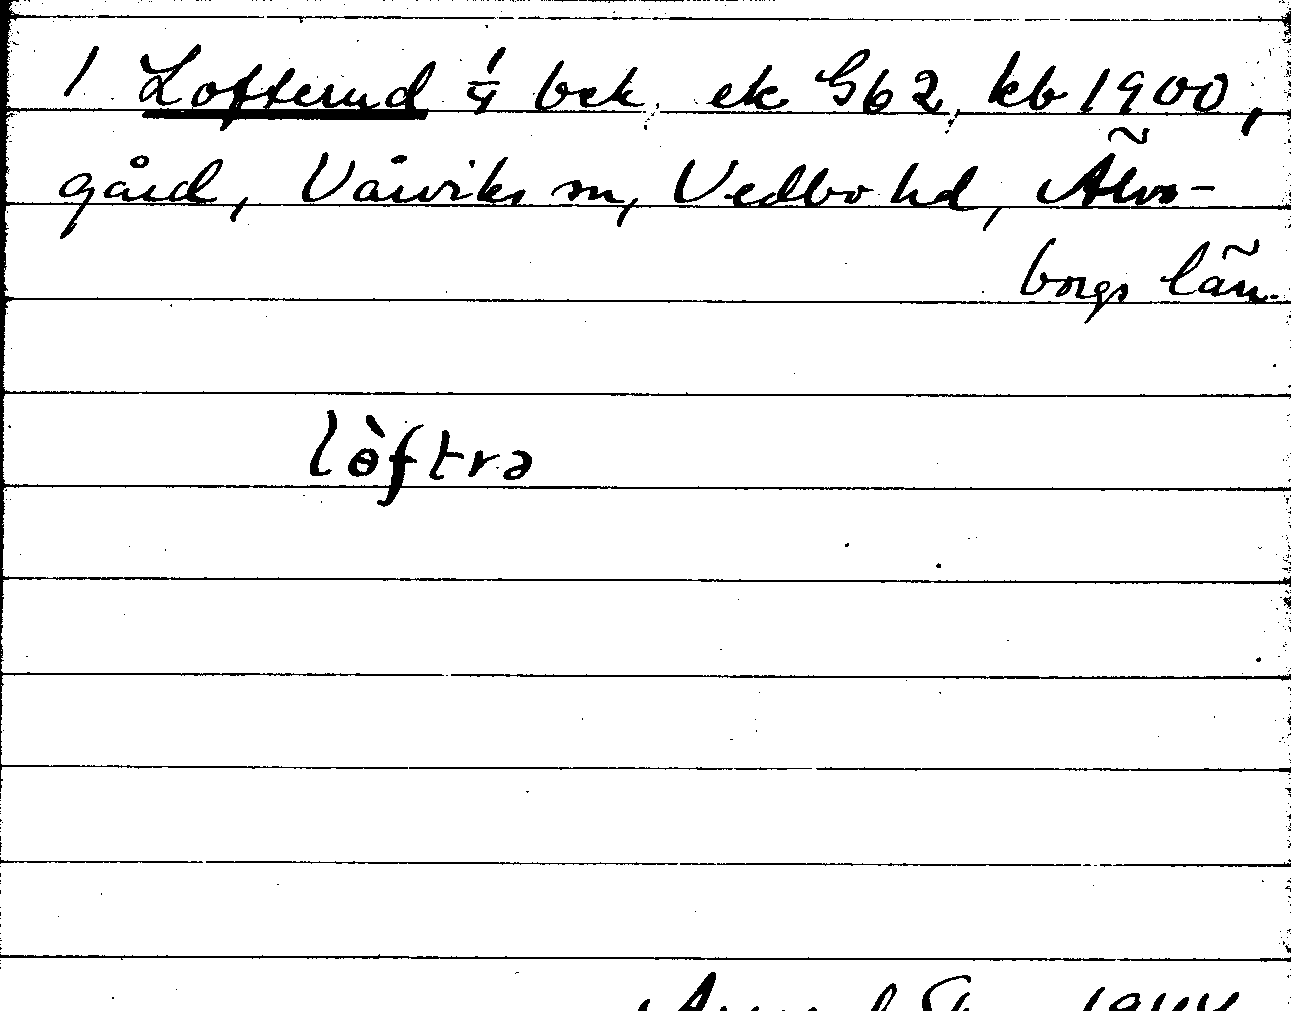 1 Lofterud 1/4 bek, ek G62, kb 1900,
gård, Vårviks sn, Vedbo hd, Älvs-
borgs län.
lɵ̀ftrə
1944